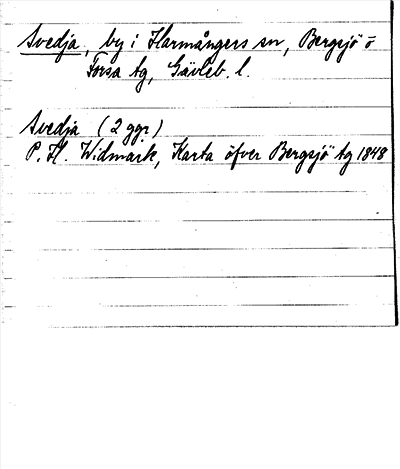 Svedja, by i Harmångers sn, Bergsjö o
Forsa tg, Gävleb. l.
Svedja (2 ggr)
P. H. Widmark, Karta öfver Bergsjö tg 1848